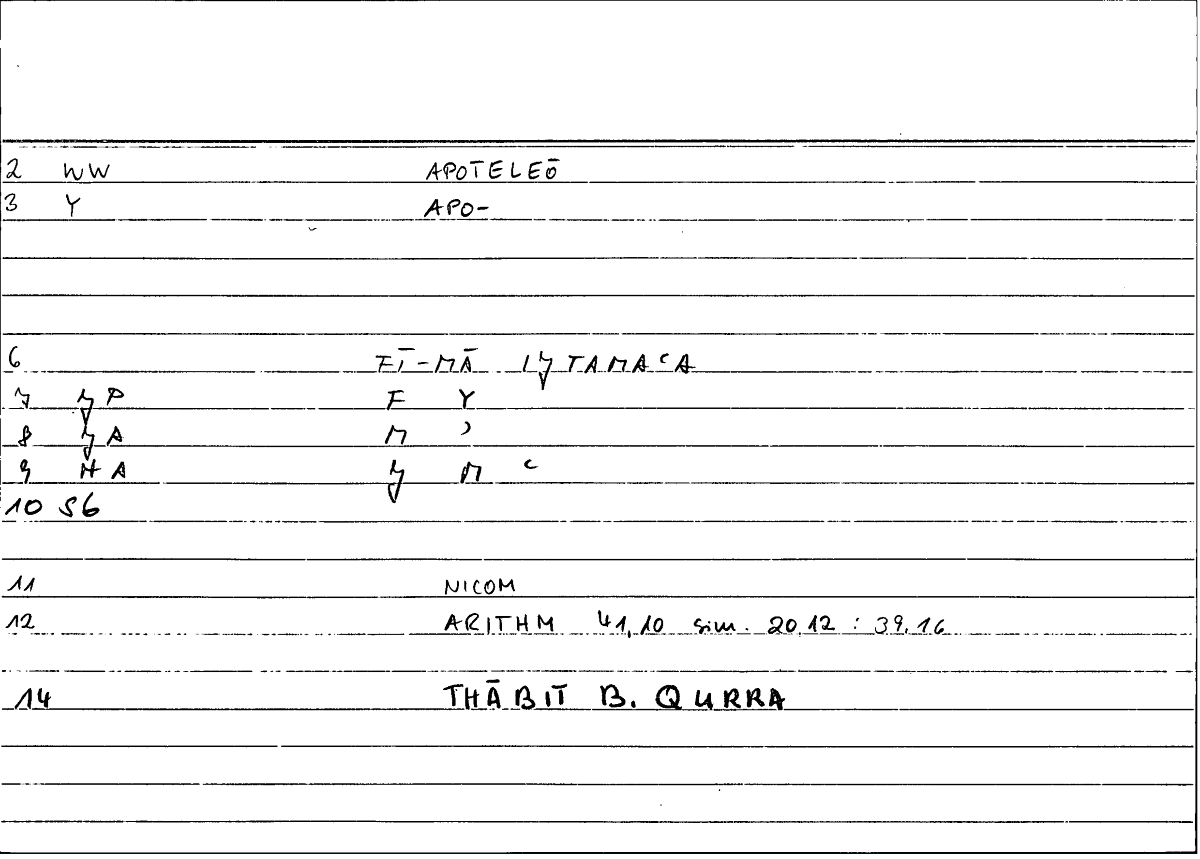 2 WW APOTELEŌ
3 Y APO-
6 FĪ-MĀ IǧTAMAʿA
7 ǧP F Y
8 ǧA M ʾ
9 HA ǧ M ʿ
10 S6
11 NICOM
12 ARITHM 41,10 sim. 20.12 : 39.16
14 THĀBIT B. QURRA